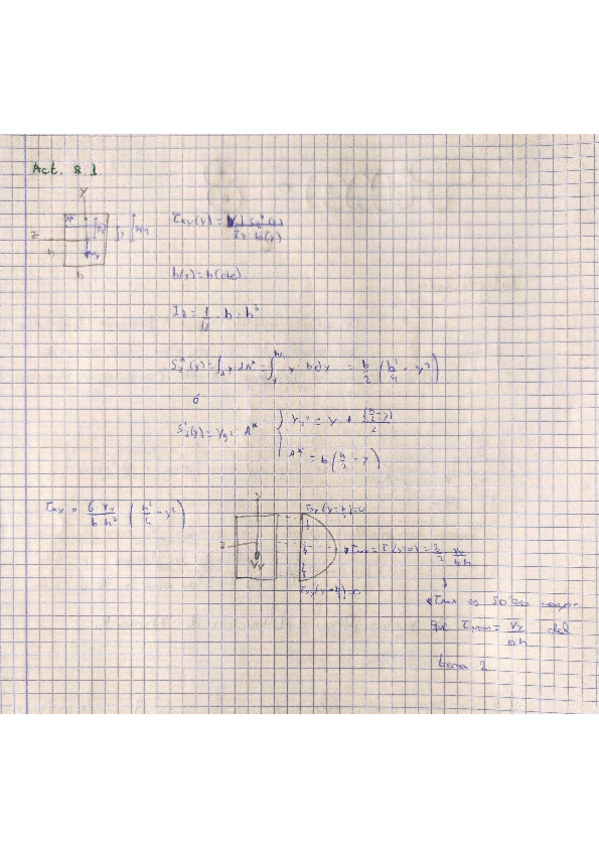 Act. 8.1
y
z
h
b
Vy
τxy(y) = Vy · Sz*(y) / Iz · b(y)
b(y) = b (cte).
Iz = 1/12 · b · h³
Sz*(y) = ∫A* y dA* = ∫y^h/2 y · b dy = b/2 (h²/4 - y²)
ó
Sz*(y) = yg* · A* { yg* = y + (h/2 - y)/2
A* = b (h/2 - y)
τxy = 6 · Vy / b · h³ (h²/4 - y²)
y
z
Vy
τxy (y = h/2) = 0
τmax = τ (y=0) = 3/2 · Vy / b·h
τxy (y = -h/2) = 0
τmax es 50% mayor
que τnom = Vy / b·h del
tema 2